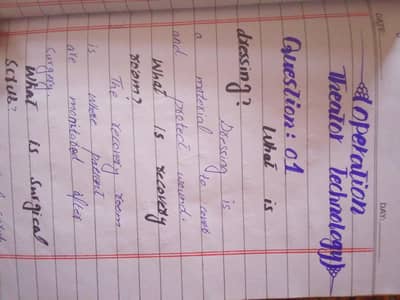 DATE:
DAY:
Operation
Theator Technology
Question: 01
What is
dressing?
Dressing is
a material to
and protect wound.
What is recovery
room?
The recovery room
is where patient
are monitored after
surgery.
What is Surgical
Scrub?